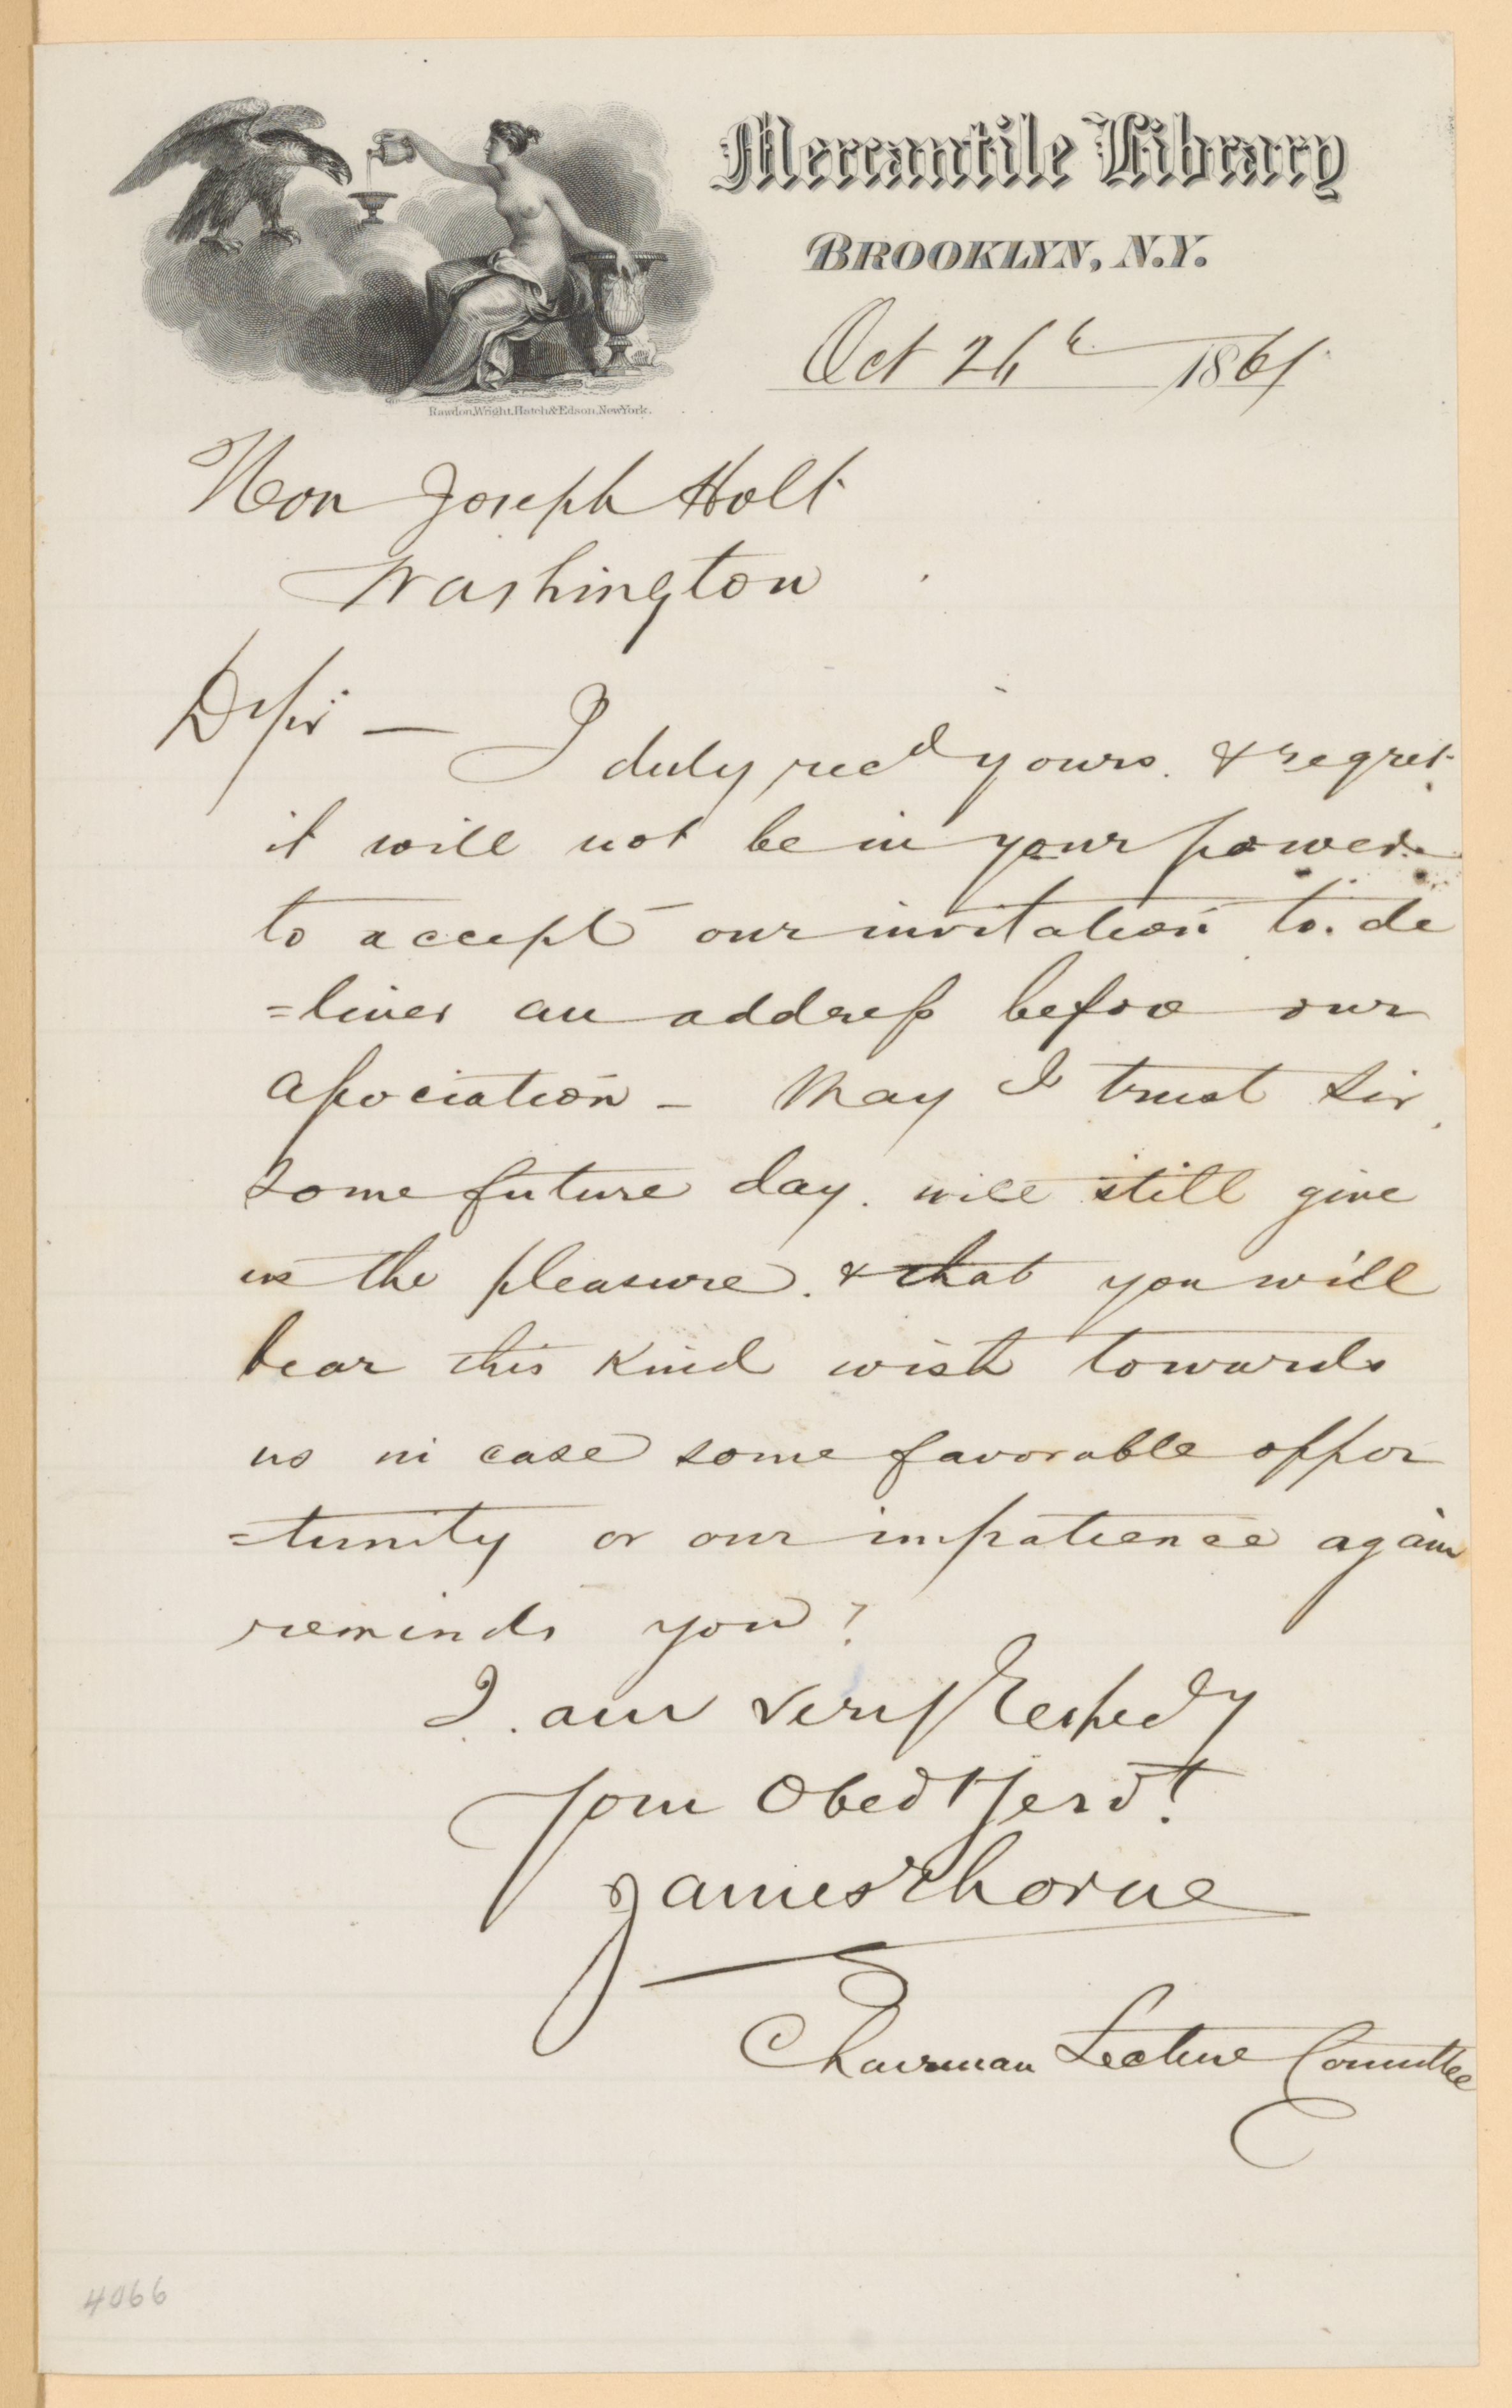 Mercantile Library
BROOKLYN, N.Y.
Oct 26th 1861
Rawdon, Wright, Hatch & Edson, New York.
Hon Joseph Holt
Washington
Dr Sir — I duly recd yours. & regret
it will not be in your power
to accept our invitation to de
=liver an address before our
association — May I trust Sir
some future day. will still give
us the pleasure. & that you will
bear this kind wish towards
us in case some favorable oppor
=tunity or our impatience again
reminds you?
I. am Very Respecdy
Your Obedt Servt.
James Thorne
Chairman Lecture Committee
4066